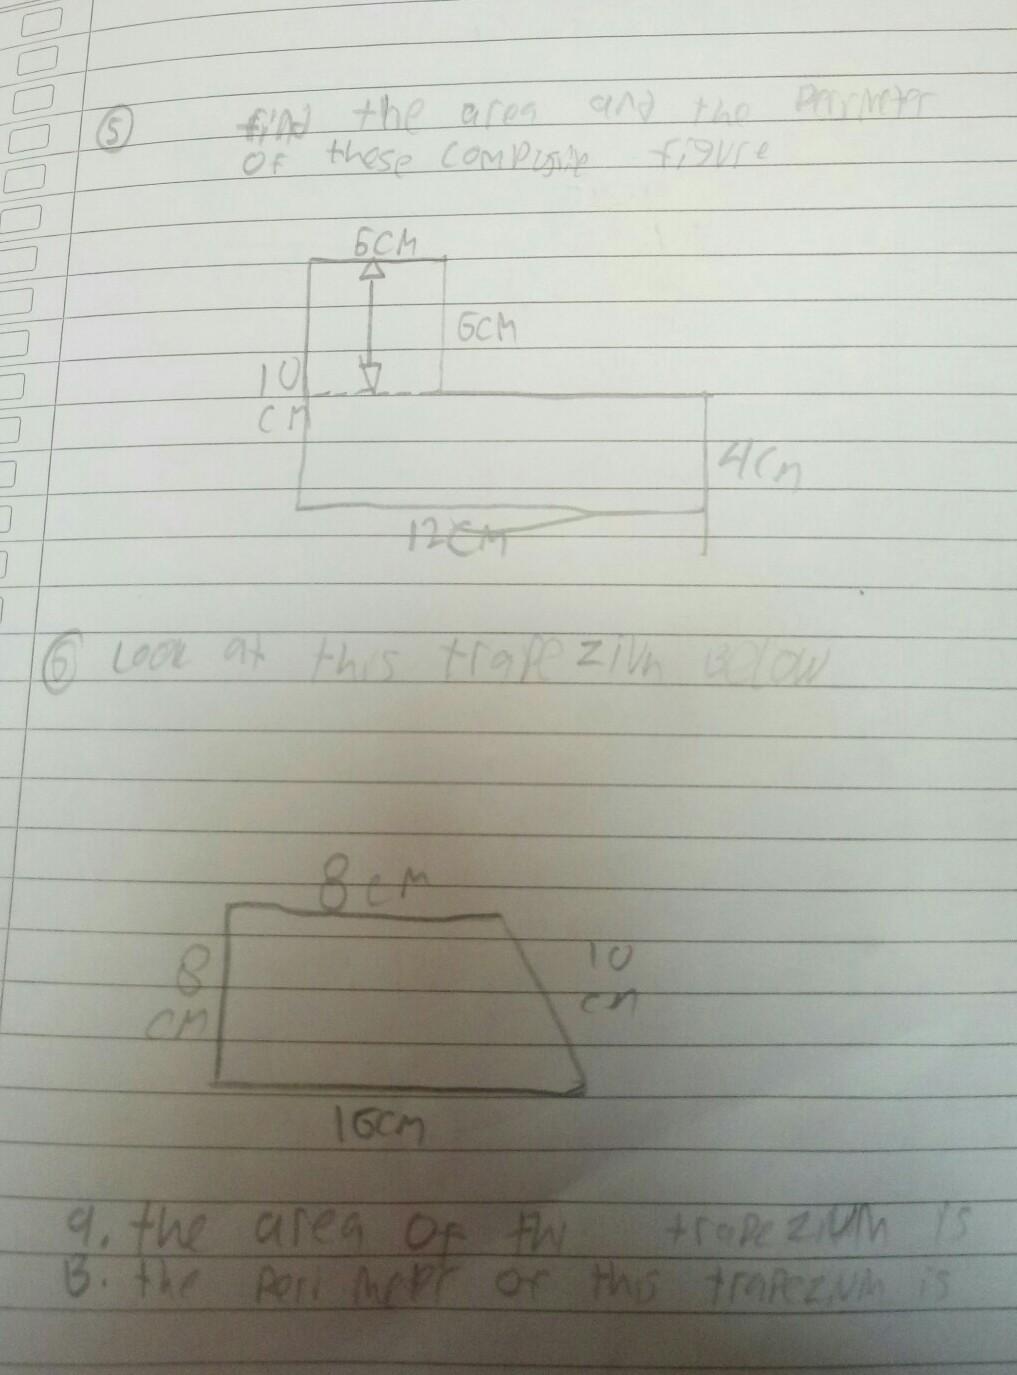 5 find the area and the Perimeter
of these composite figure
6CM
6CM
10
CM
4Cm
12CM
6 Look at this trapezium Below
8cm
8
CM
10
cm
16cm
a. the area of thi trapezium is
B. the Perimeter of this trapezium is